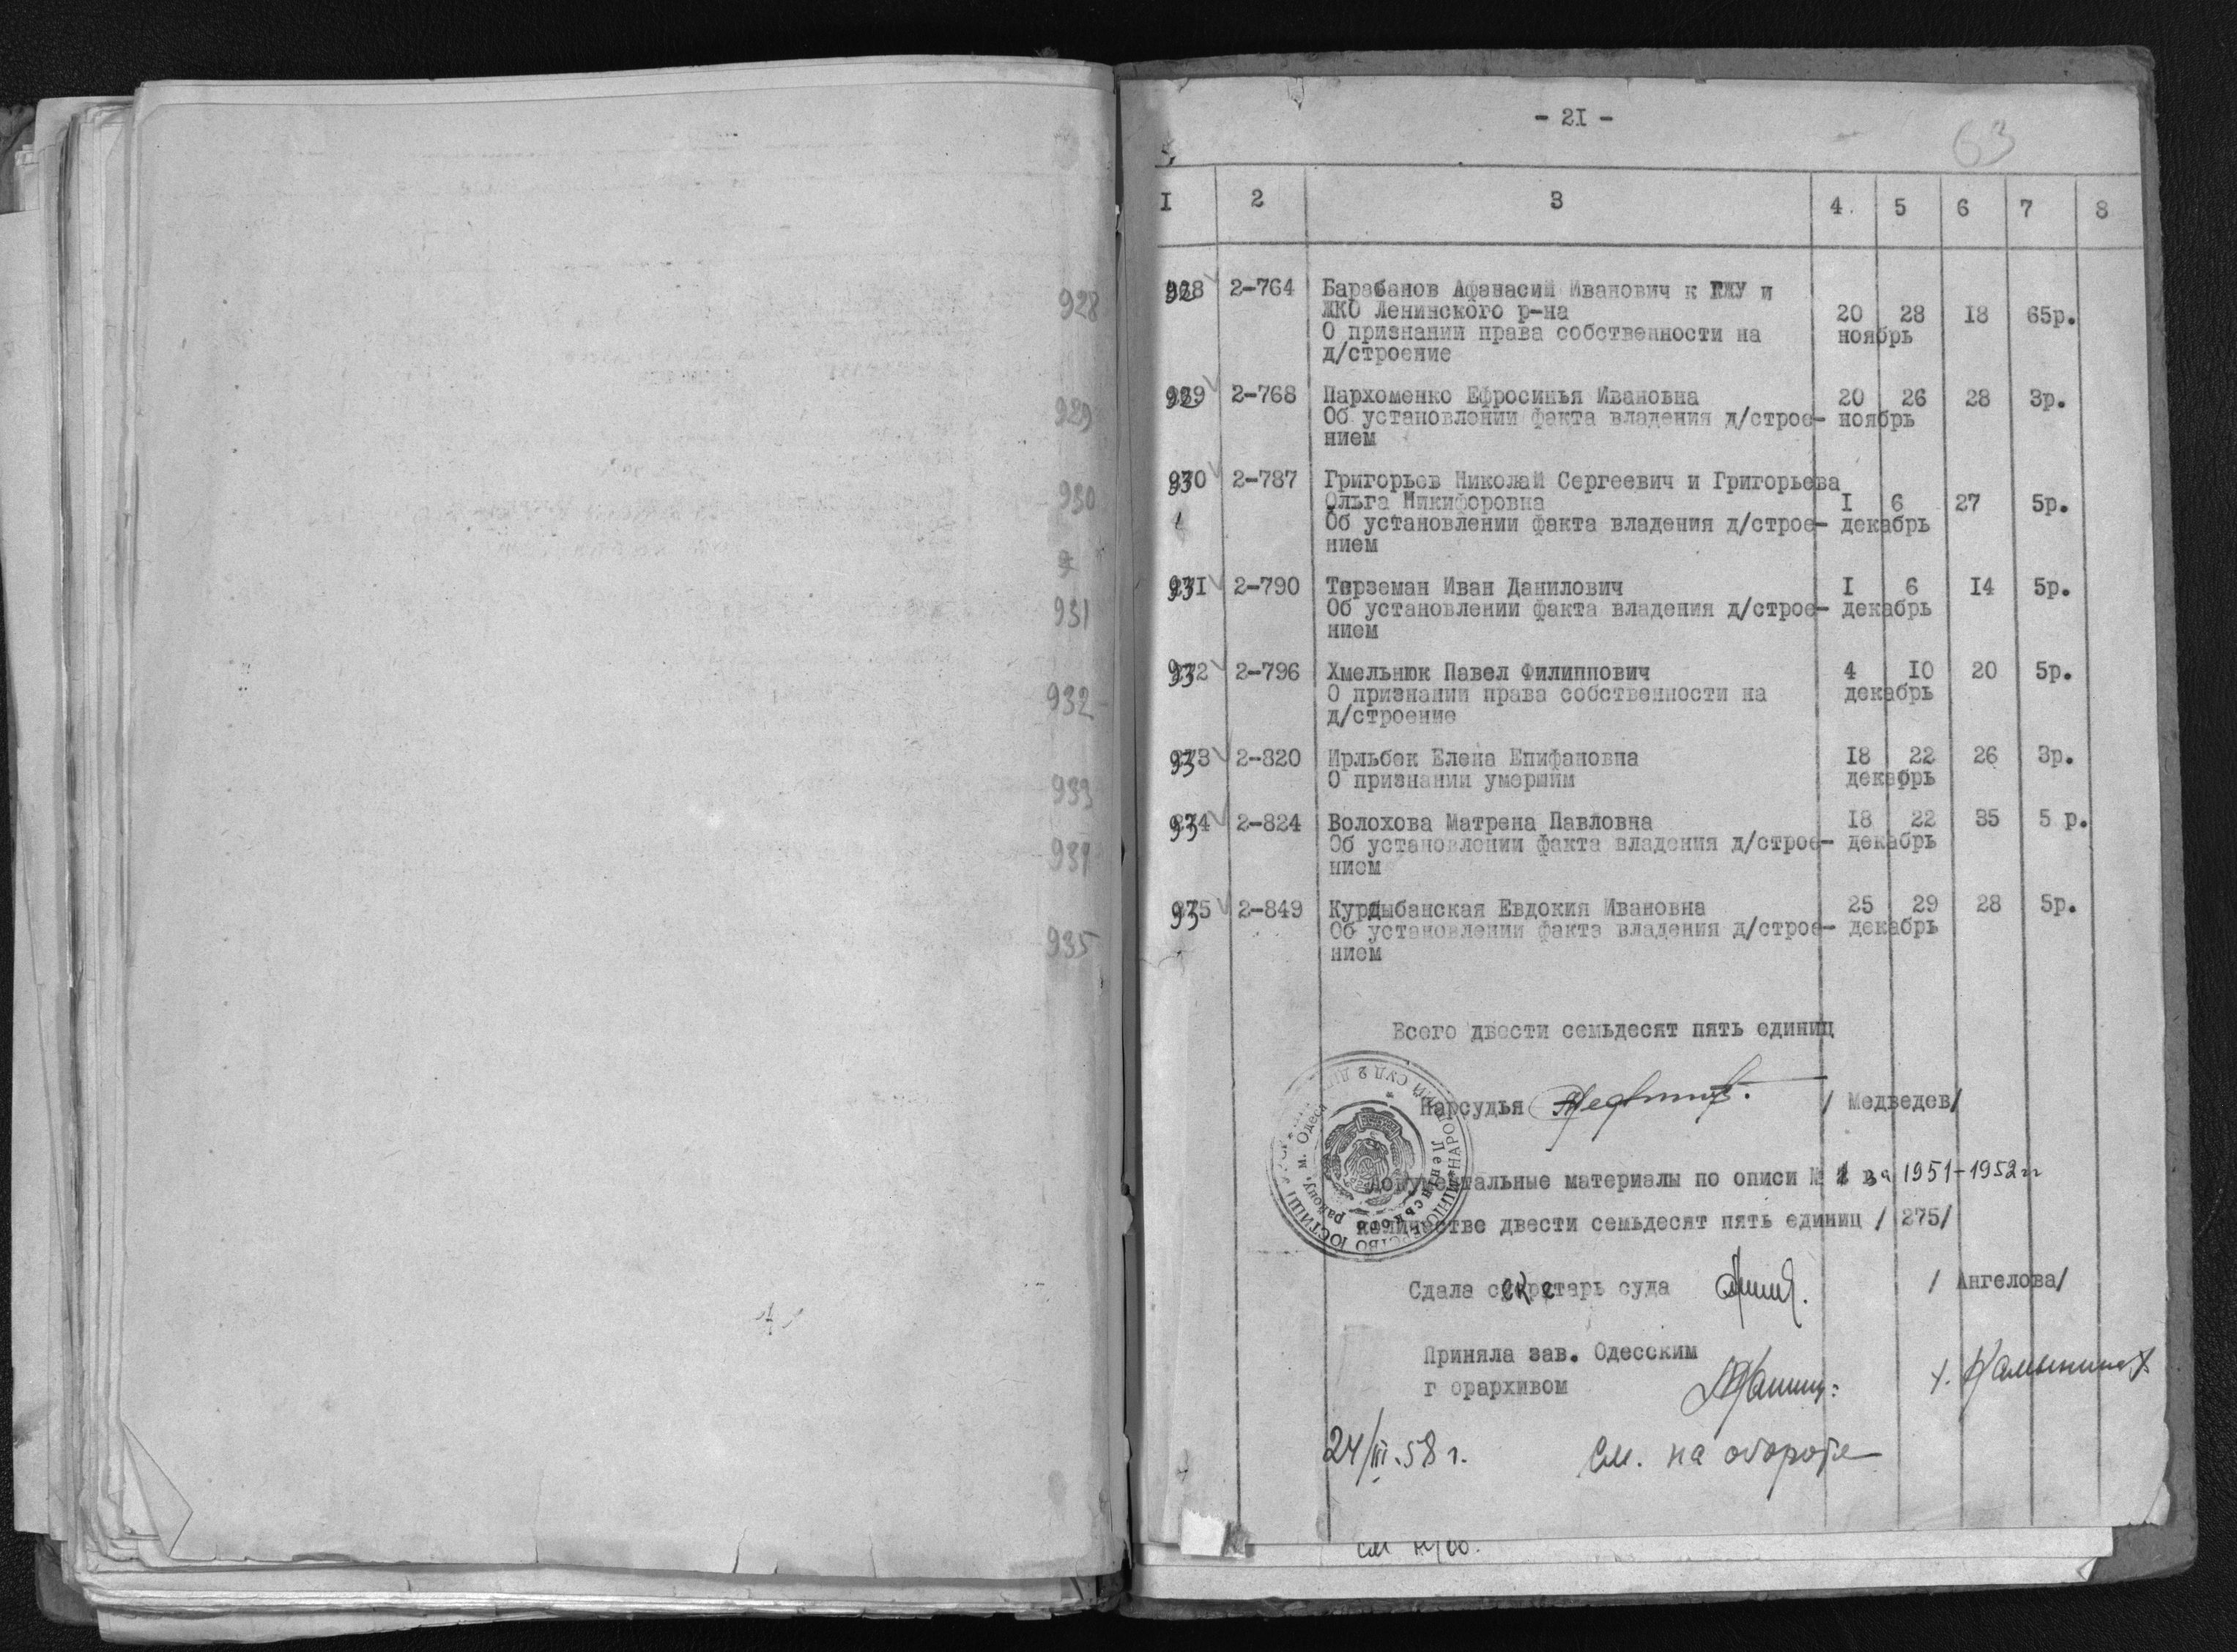 928
929
930
931
932
933
934
935
- 2I -
63
I 2 3 4. 5 6 7 8
928 2-764 Барабанов Афанасий Иванович к ГЖУ и
ЖКО Ленинского р-на 20 28 I8 65р.
О признании права собственности на ноябрь
д/строение
929 2-768 Пархоменко Ефросинья Ивановна 20 26 28 3р.
Об установлении факта владения д/строе- ноябрь
нием
930 2-787 Григорьев Николай Сергеевич и Григорьева
Ольга Никифоровна I 6 27 5р.
Об установлении факта владения д/строе- декабрь
нием
931 2-790 Терземан Иван Данилович I 6 I4 5р.
Об установлении факта владения д/строе- декабрь
нием
932 2-796 Хмельнюк Павел Филиппович 4 I0 20 5р.
О признании права собственности на декабрь
д/строение
933 2-820 Ирльбек Елена Епифановна I8 22 26 3р.
О признании умершим декабрь
934 2-824 Волохова Матрена Павловна I8 22 35 5 р.
Об установлении факта владения д/строе- декабрь
нием
935 2-849 Курдыбанская Евдокия Ивановна 25 29 28 5р.
Об установлении факта владения д/строе- декабрь
нием
Всего двести семьдесят пять единиц
Нарсудья / Медведев/
Документальные материалы по описи № 1 за 1951-1952гг
количестве двести семьдесят пять единиц / 275/
Сдала секретарь суда / Ангелова/
Приняла зав. Одесским
г орархивом
24/III.58 г. См. на обороте
см н/об.